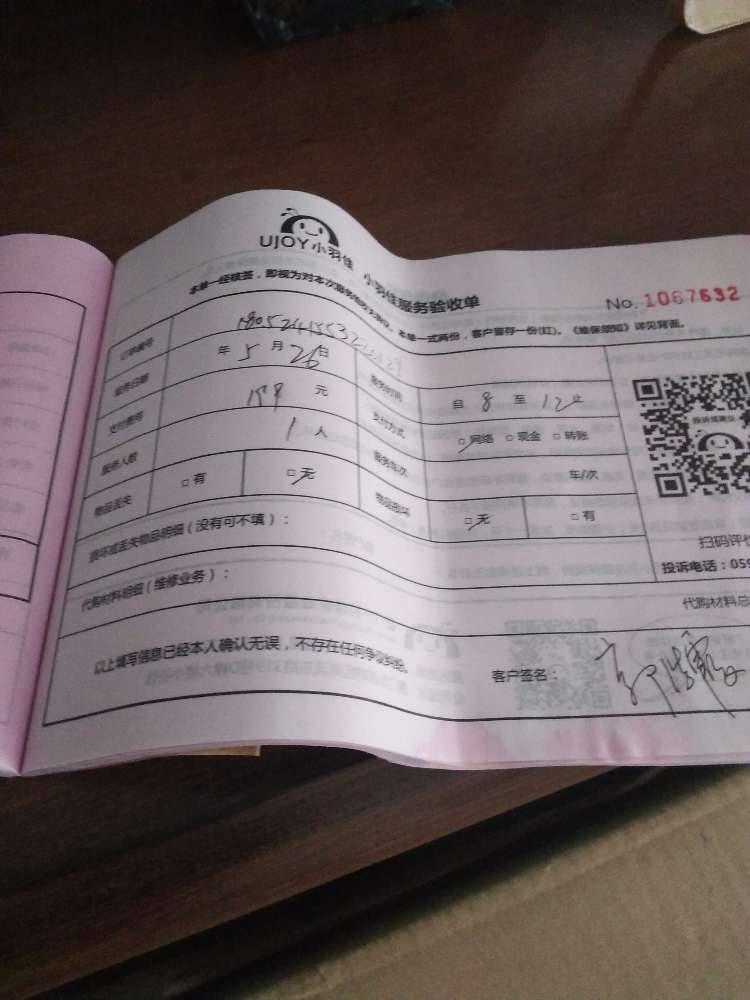 UJOY小羽佳 小羽佳服务验收单
No. 1067632
本单一经核签，即视为对本次服务 本单一式两份，客户留存一份(红)。《维保须知》详见背面。
订单编号
服务日期 年 5 月 26 日 服务时间 自 8 至 12 止
支付费用 159 元 支付方式 □网络 □现金 □转账
服务人数 1 人 服务车次 车/次
物品丢失 □有 □无 物品损坏 □无 □有
损坏或丢失物品明细（没有可不填）：
代购材料明细（维修业务）：
扫码评价
投诉电话：059
代购材料总
以上填写信息已经本人确认无误，不存在任何争议纠纷。
客户签名：